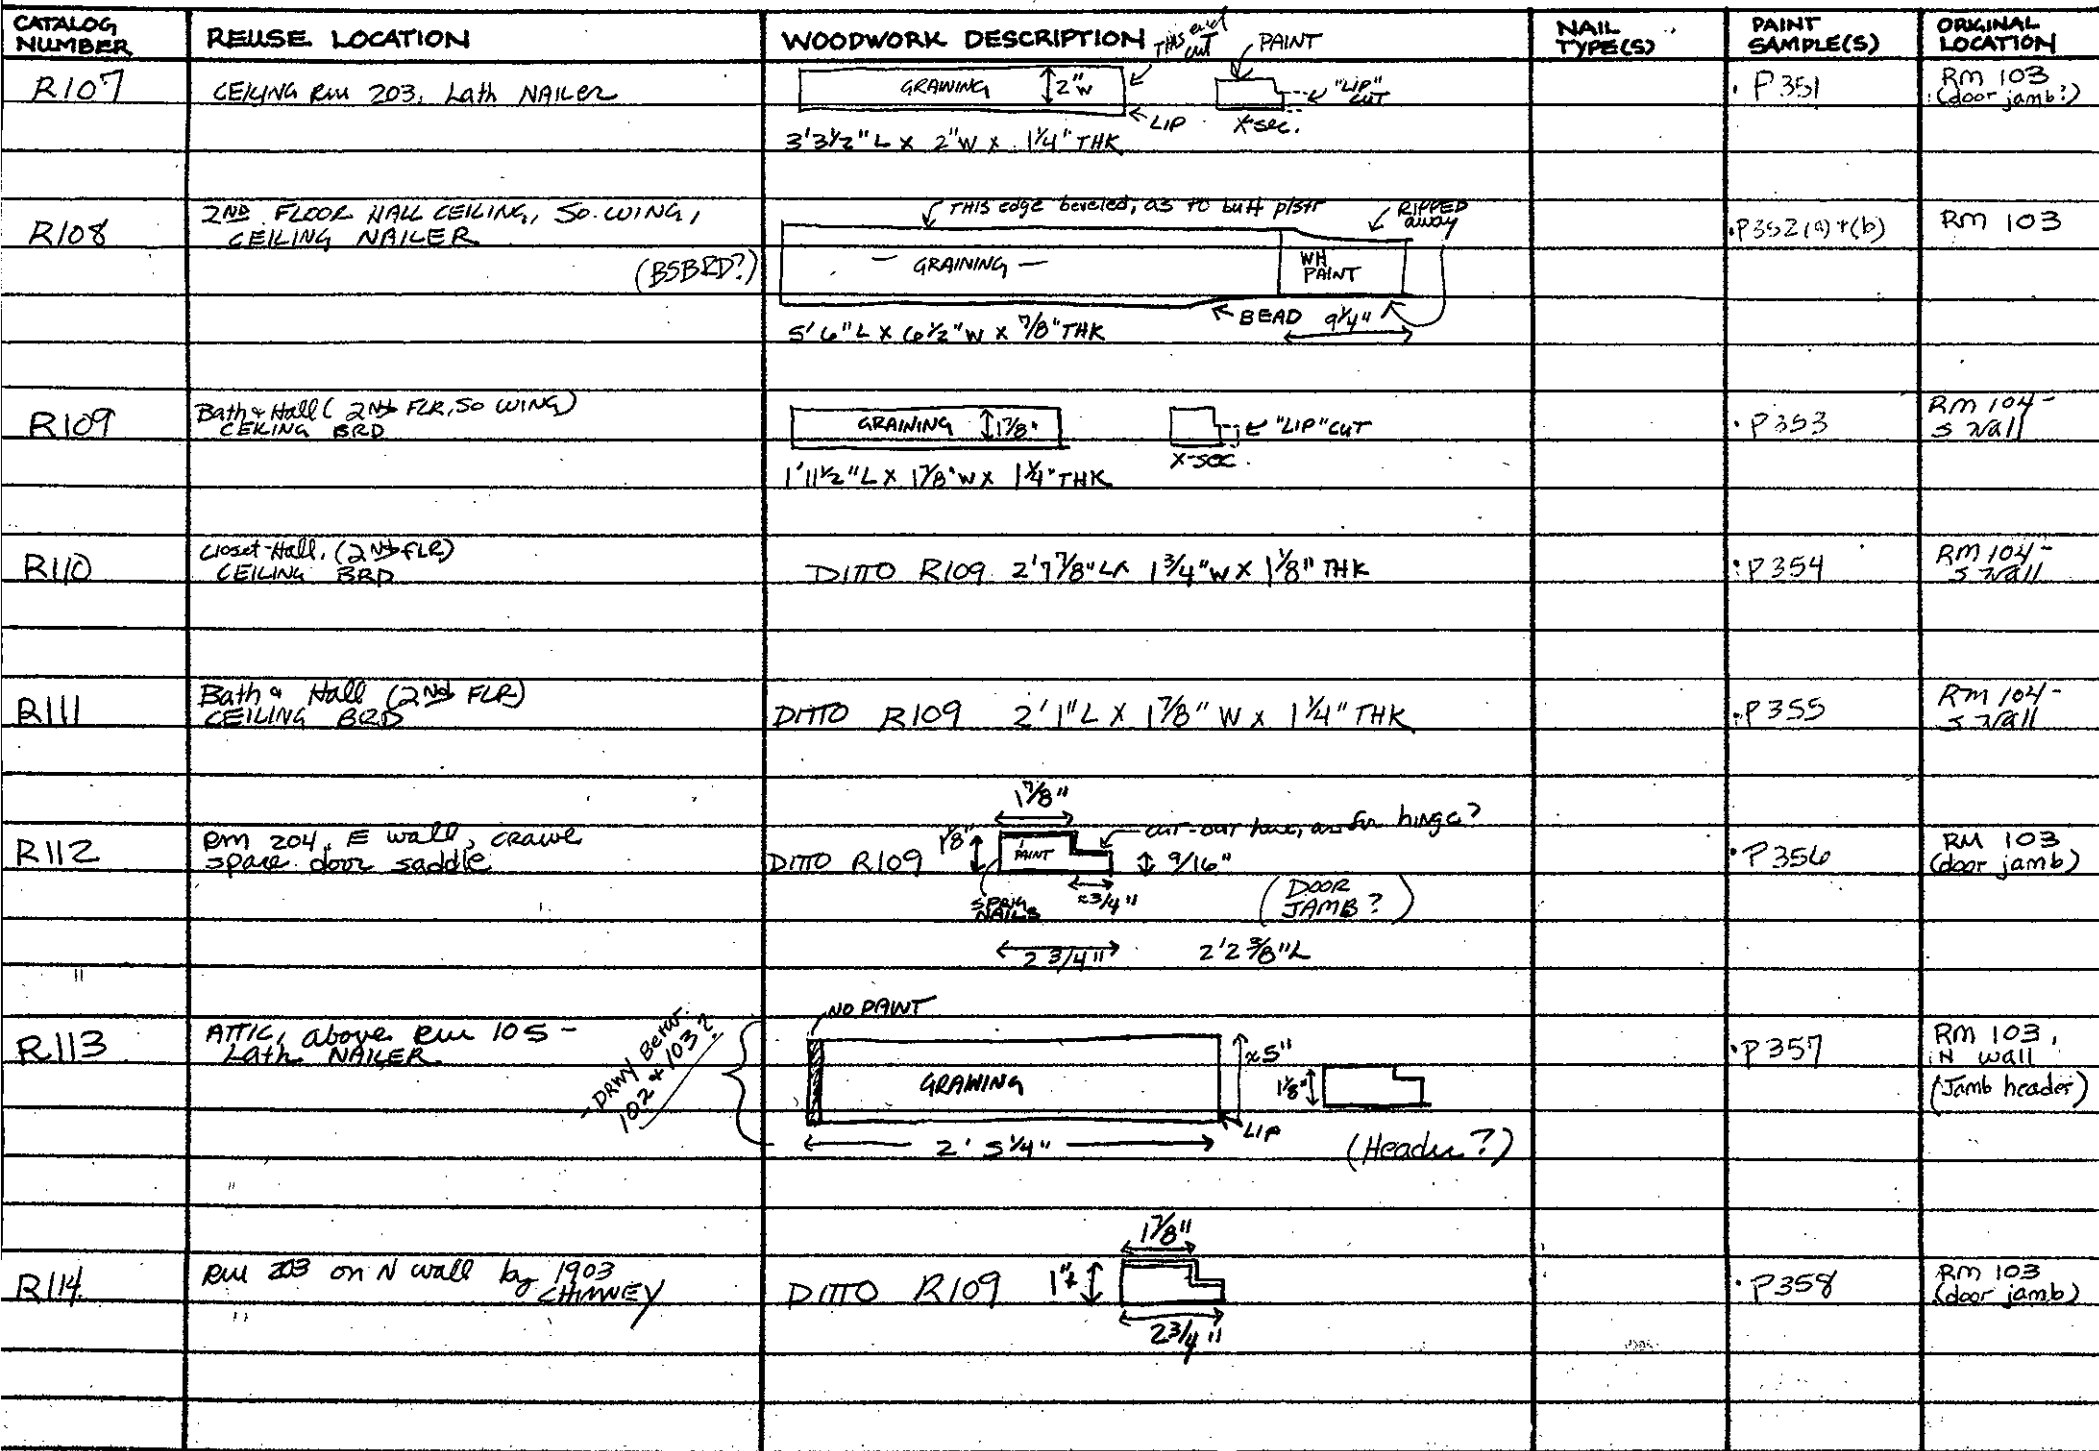 CATALOG NUMBER
REUSE LOCATION
WOODWORK DESCRIPTION
NAIL TYPE(S)
PAINT SAMPLE(S)
ORIGINAL LOCATION
R107
CEILING Rm 203, Lath NAILER
GRAINING
2" W
THIS end cut
LIP
PAINT
"LIP" CUT
X-sec.
3'3½" L X 2" W X 1¼" THK
P351
RM 103
(door jamb?)
R108
2ND FLOOR HALL CEILING, SO. WING,
CEILING NAILER
(BSBRD?)
THIS edge beveled, as to butt plstr
RIPPED away
GRAINING
WH PAINT
BEAD
9¼"
5'6" L X 6½" W X ⅞" THK
P352(a)+(b)
RM 103
R109
Bath & Hall (2ND FLR, SO WING)
CEILING BRD
GRAINING
1⅞"
"LIP" CUT
X-SEC.
1'11½" L X 1⅞" W X 1¼" THK
P353
RM 104-
S Wall
R110
Closet-Hall, (2ND FLR)
CEILING BRD
DITTO R109 2'7⅞" L X 1¾" W X 1⅛" THK
P354
RM 104-
S Wall
R111
Bath & Hall (2ND FLR)
CEILING BRD
DITTO R109 2'1" L X 1⅞" W X 1¼" THK
P355
RM 104-
S Wall
R112
Rm 204, E wall, crawl
space door saddle
DITTO R109
1⅞"
1⅛"
PAINT
cut-out here, as for hinge?
9/16"
SPRIG NAILS
≈3/4"
(DOOR JAMB?)
2 3/4"
2'2⅜" L
P356
RM 103
(door jamb)
R113
ATTIC, above Rm 105 -
Lath NAILER
- DRWY Betw.
102 & 103?
NO PAINT
GRAINING
≈5"
LIP
1⅛"
2' 5¼"
(Header?)
P357
RM 103,
N wall
(Jamb header)
R114
Rm 203 on N wall by 1903
CHIMNEY
DITTO R109
1⅞"
1"+
2¾"
P358
RM 103
(door jamb)